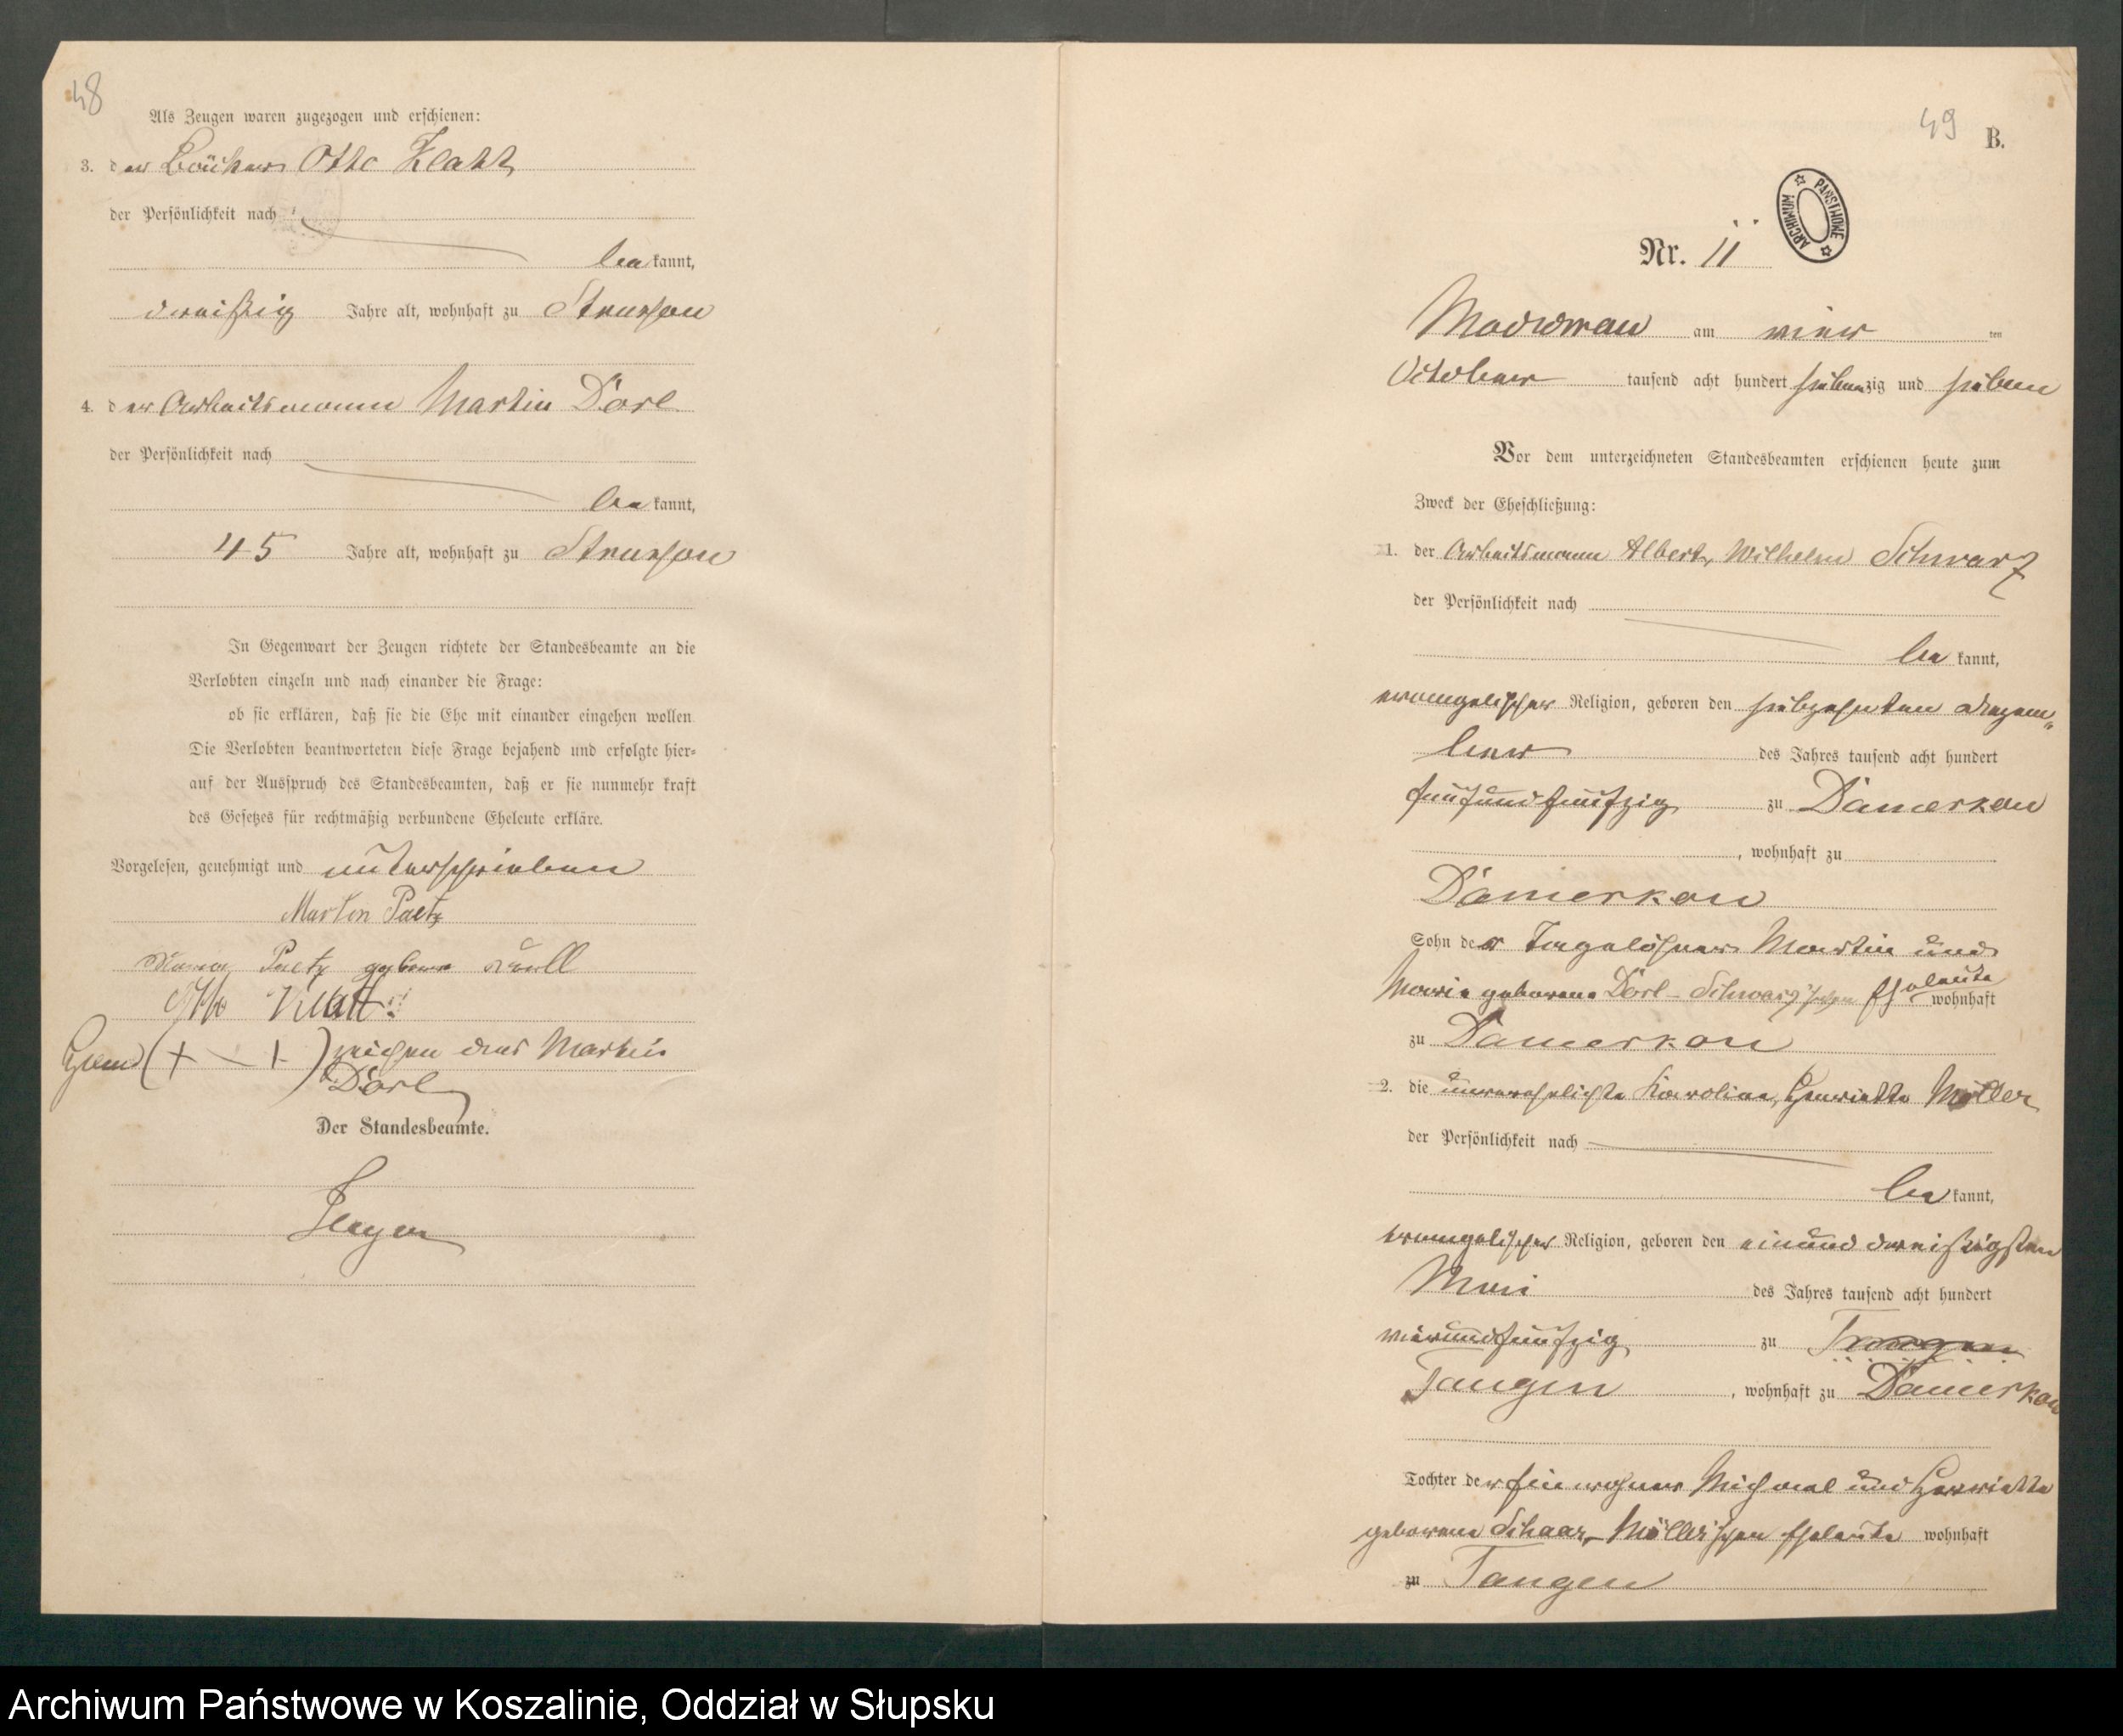 48
Als Zeugen waren zugezogen und erschienen:
3. der Bäcker Otto Klatt
der Persönlichkeit nach
bekannt,
dreißig Jahre alt, wohnhaft zu
4. der Arbeitsmann Martin Dörl
der Persönlichkeit nach
bekannt,
45 Jahre alt, wohnhaft zu
In Gegenwart der Zeugen richtete der Standesbeamte an die
Verlobten einzeln und nach einander die Frage:
ob sie erklären, daß sie die Ehe mit einander eingehen wollen.
Die Verlobten beantworteten diese Frage bejahend und erfolgte hier-
auf der Ausspruch des Standesbeamten, daß er sie nunmehr kraft
des Gesetzes für rechtmäßig verbundene Eheleute erkläre.
Vorgelesen, genehmigt und unterschrieben
Martin Paetz
Paetz geborene
Otto Klatt
(+ — +) zeichen des Martin
Dörl
Der Standesbeamte.
49
B.
ARCHIWUM PAŃSTWOWE
Nr. 11
am vier ten
October tausend acht hundert siebenzig und sieben
Vor dem unterzeichneten Standesbeamten erschienen heute zum
Zweck der Eheschließung:
1. der Arbeitsmann Albert, Wilhelm Schwarz
der Persönlichkeit nach
bekannt,
evangelischer Religion, geboren den siebzehnten Dezem„
ber des Jahres tausend acht hundert
fünfundfünfzig zu Damerkow
, wohnhaft zu
Damerkow
Sohn der Tagelöhner Martin und
Marie geborene Dörl-Schwarz'schen Eheleute wohnhaft
zu Damerkow
2. die unverehelichte Karoline, Henriette Möller
der Persönlichkeit nach
bekannt,
evangelischer Religion, geboren den einunddreißigsten
Mai des Jahres tausend acht hundert
vierundfünfzig zu
Tangen, wohnhaft zu Damerkow
Tochter der Einwohner Michael und Henriette
geborene Schaar-Möller'schen Eheleute wohnhaft
zu Tangen
Archiwum Państwowe w Koszalinie, Oddział w Słupsku